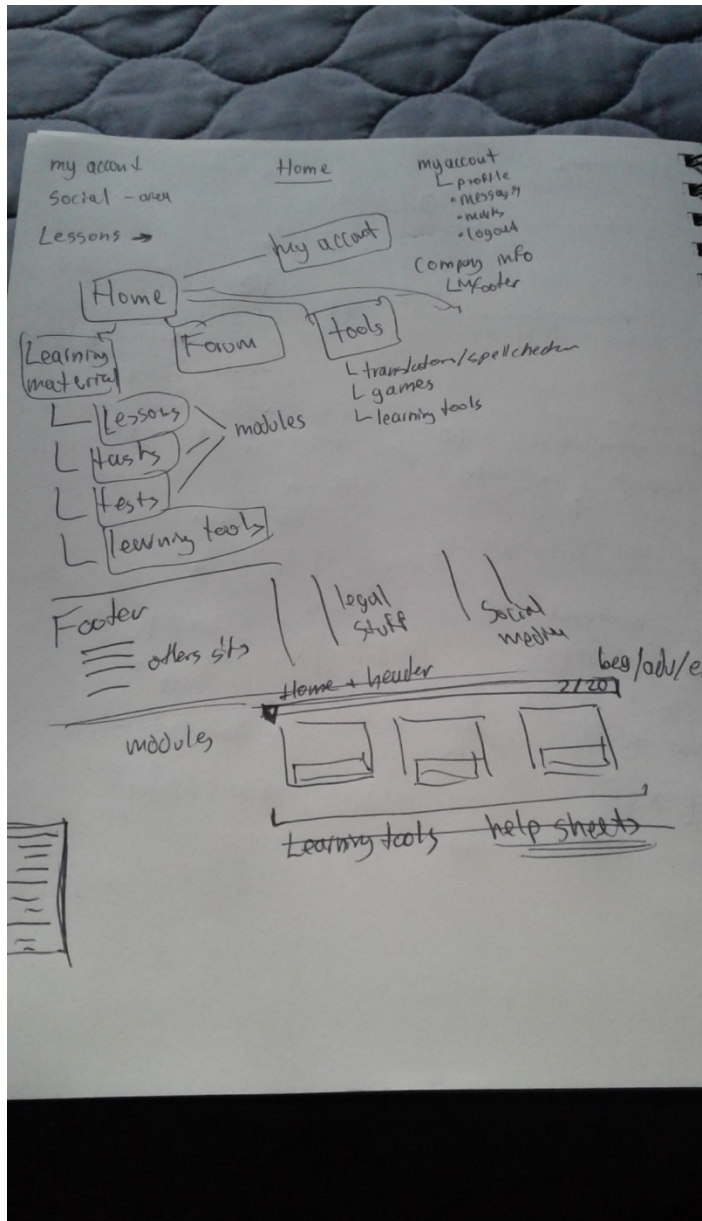 my account
Social - area
Lessons →
Home
my accout
profile
• messags
• marks
• logout
Company info
Footer
my accout
Home
Learning
material
Forum
tools
translators/spellchecker
games
learning tools
Lessons
tasks
tests
learning tools
modules
Footer
others sits
legal
stuff
Social
media
Home + header
beg/adv/e
2/20
modules
Learning tools
help sheets